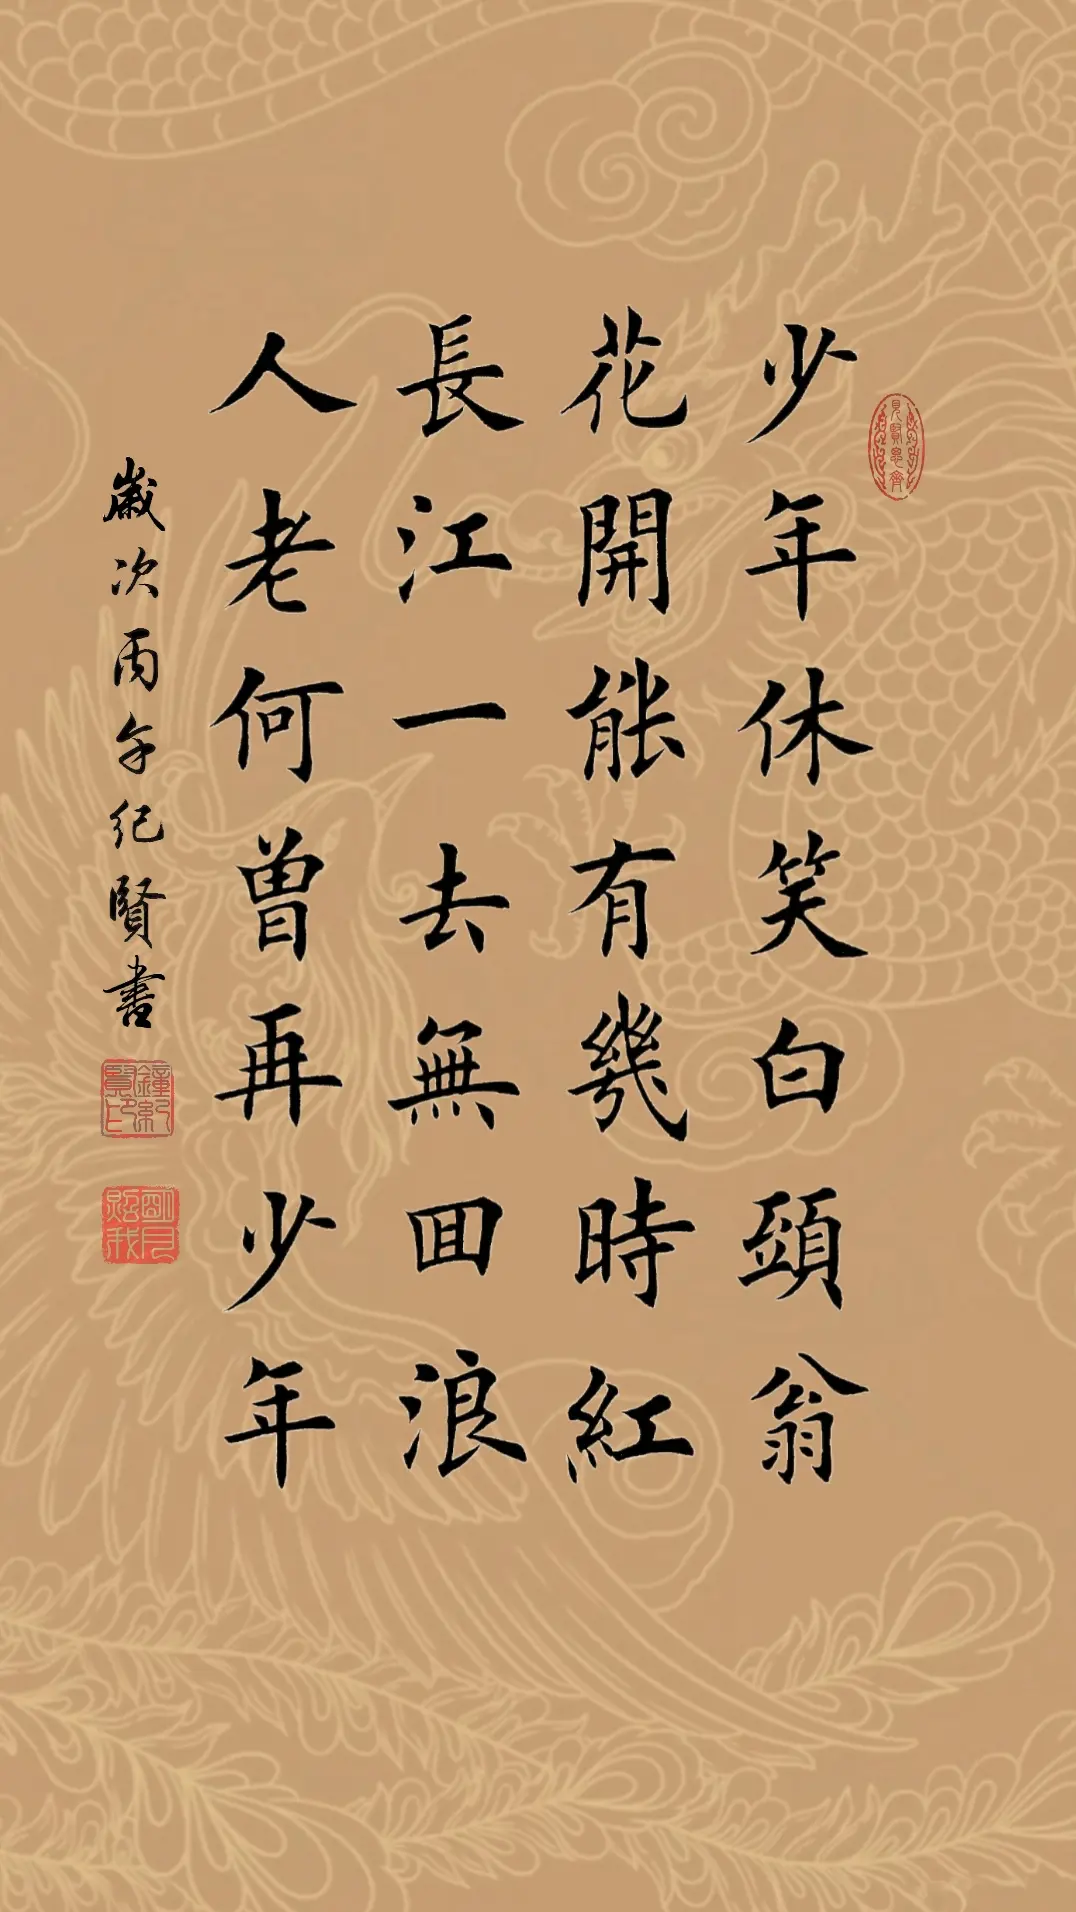 少年休笑白頭翁
花開能有幾時紅
長江一去無回浪
人老何曾再少年
歲次丙午紀賢書
見賢思齊
鐘紀賢印